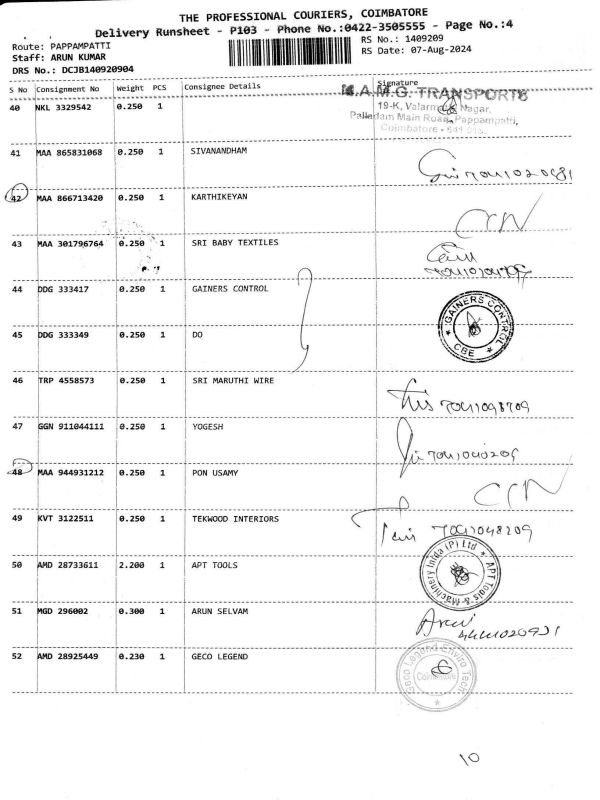 THE PROFESSIONAL COURIERS, COIMBATORE
Delivery Runsheet - P103 - Phone No.:0422-3505555 - Page No.:4
Route: PAPPAMPATTI
RS No.: 1409209
Staff: ARUN KUMAR
RS Date: 07-Aug-2024
DRS No.: DCJB140920904
S No Consignment No Weight PCS Consignee Details Signature
40 NKL 3329542 0.250 1
K.A.M.G. TRANSPORTS
19-K, Valarmathi Nagar,
Palladam Main Road, Pappampatti,
Coimbatore - 641 016.
41 MAA 865831068 0.250 1 SIVANANDHAM
42 MAA 866713420 0.250 1 KARTHIKEYAN
43 MAA 301796764 0.250 1 SRI BABY TEXTILES
44 DDG 333417 0.250 1 GAINERS CONTROL
GAINERS CONTROL
CBE
45 DDG 333349 0.250 1 DO
46 TRP 4558573 0.250 1 SRI MARUTHI WIRE
7041098709
47 GGN 911044111 0.250 1 YOGESH
48 MAA 944931212 0.250 1 PON USAMY
49 KVT 3122511 0.250 1 TEKWOOD INTERIORS
50 AMD 28733611 2.200 1 APT TOOLS
APT Tools & Machinery India (P) Ltd
51 MGD 296002 0.300 1 ARUN SELVAM
Arun
52 AMD 28925449 0.230 1 GECO LEGEND
Geco Legend Enviro Tech
Coimbatore
10